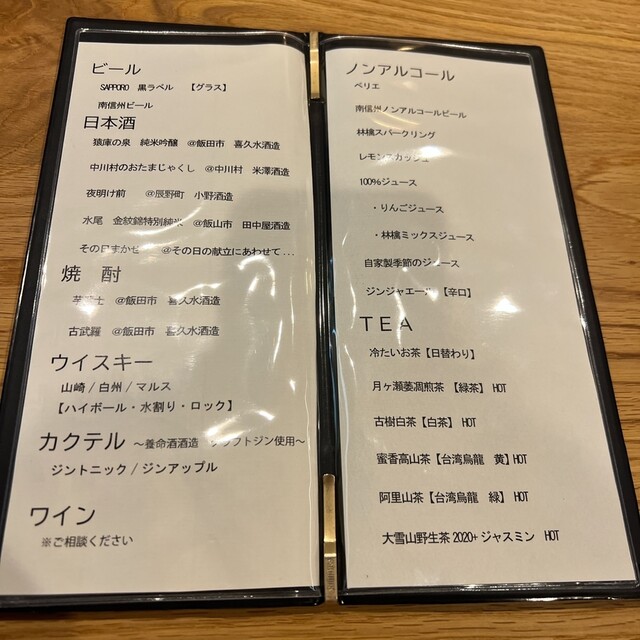 ビール
SAPPORO 黒ラベル 【グラス】
南信州ビール
日本酒
猿庫の泉 純米吟醸 @飯田市 喜久水酒造
中川村のおたまじゃくし @中川村 米澤酒造
夜明け前 @辰野町 小野酒造
水尾 金紋錦特別純米 @飯山市 田中屋酒造
その日まかせ @その日の献立にあわせて...
焼 酎
@飯田市 喜久水酒造
古武羅 @飯田市 喜久水酒造
ウイスキー
山崎/白州/マルス
【ハイボール・水割り・ロック】
カクテル ～養命酒酒造 クラフトジン使用～
ジントニック/ジンアップル
ワイン
※ご相談ください
ノンアルコール
ペリエ
南信州ノンアルコールビール
林檎スパークリング
レモンスカッシュ
100%ジュース
・りんごジュース
・林檎ミックスジュース
自家製季節のジュース
ジンジャエール 【辛口】
TEA
冷たいお茶【日替わり】
月ヶ瀬萎凋煎茶 【緑茶】 HOT
古樹白茶【白茶】 HOT
蜜香高山茶【台湾烏龍 黄】HOT
阿里山茶【台湾烏龍 緑】 HOT
大雪山野生茶 2020+ジャスミン HOT